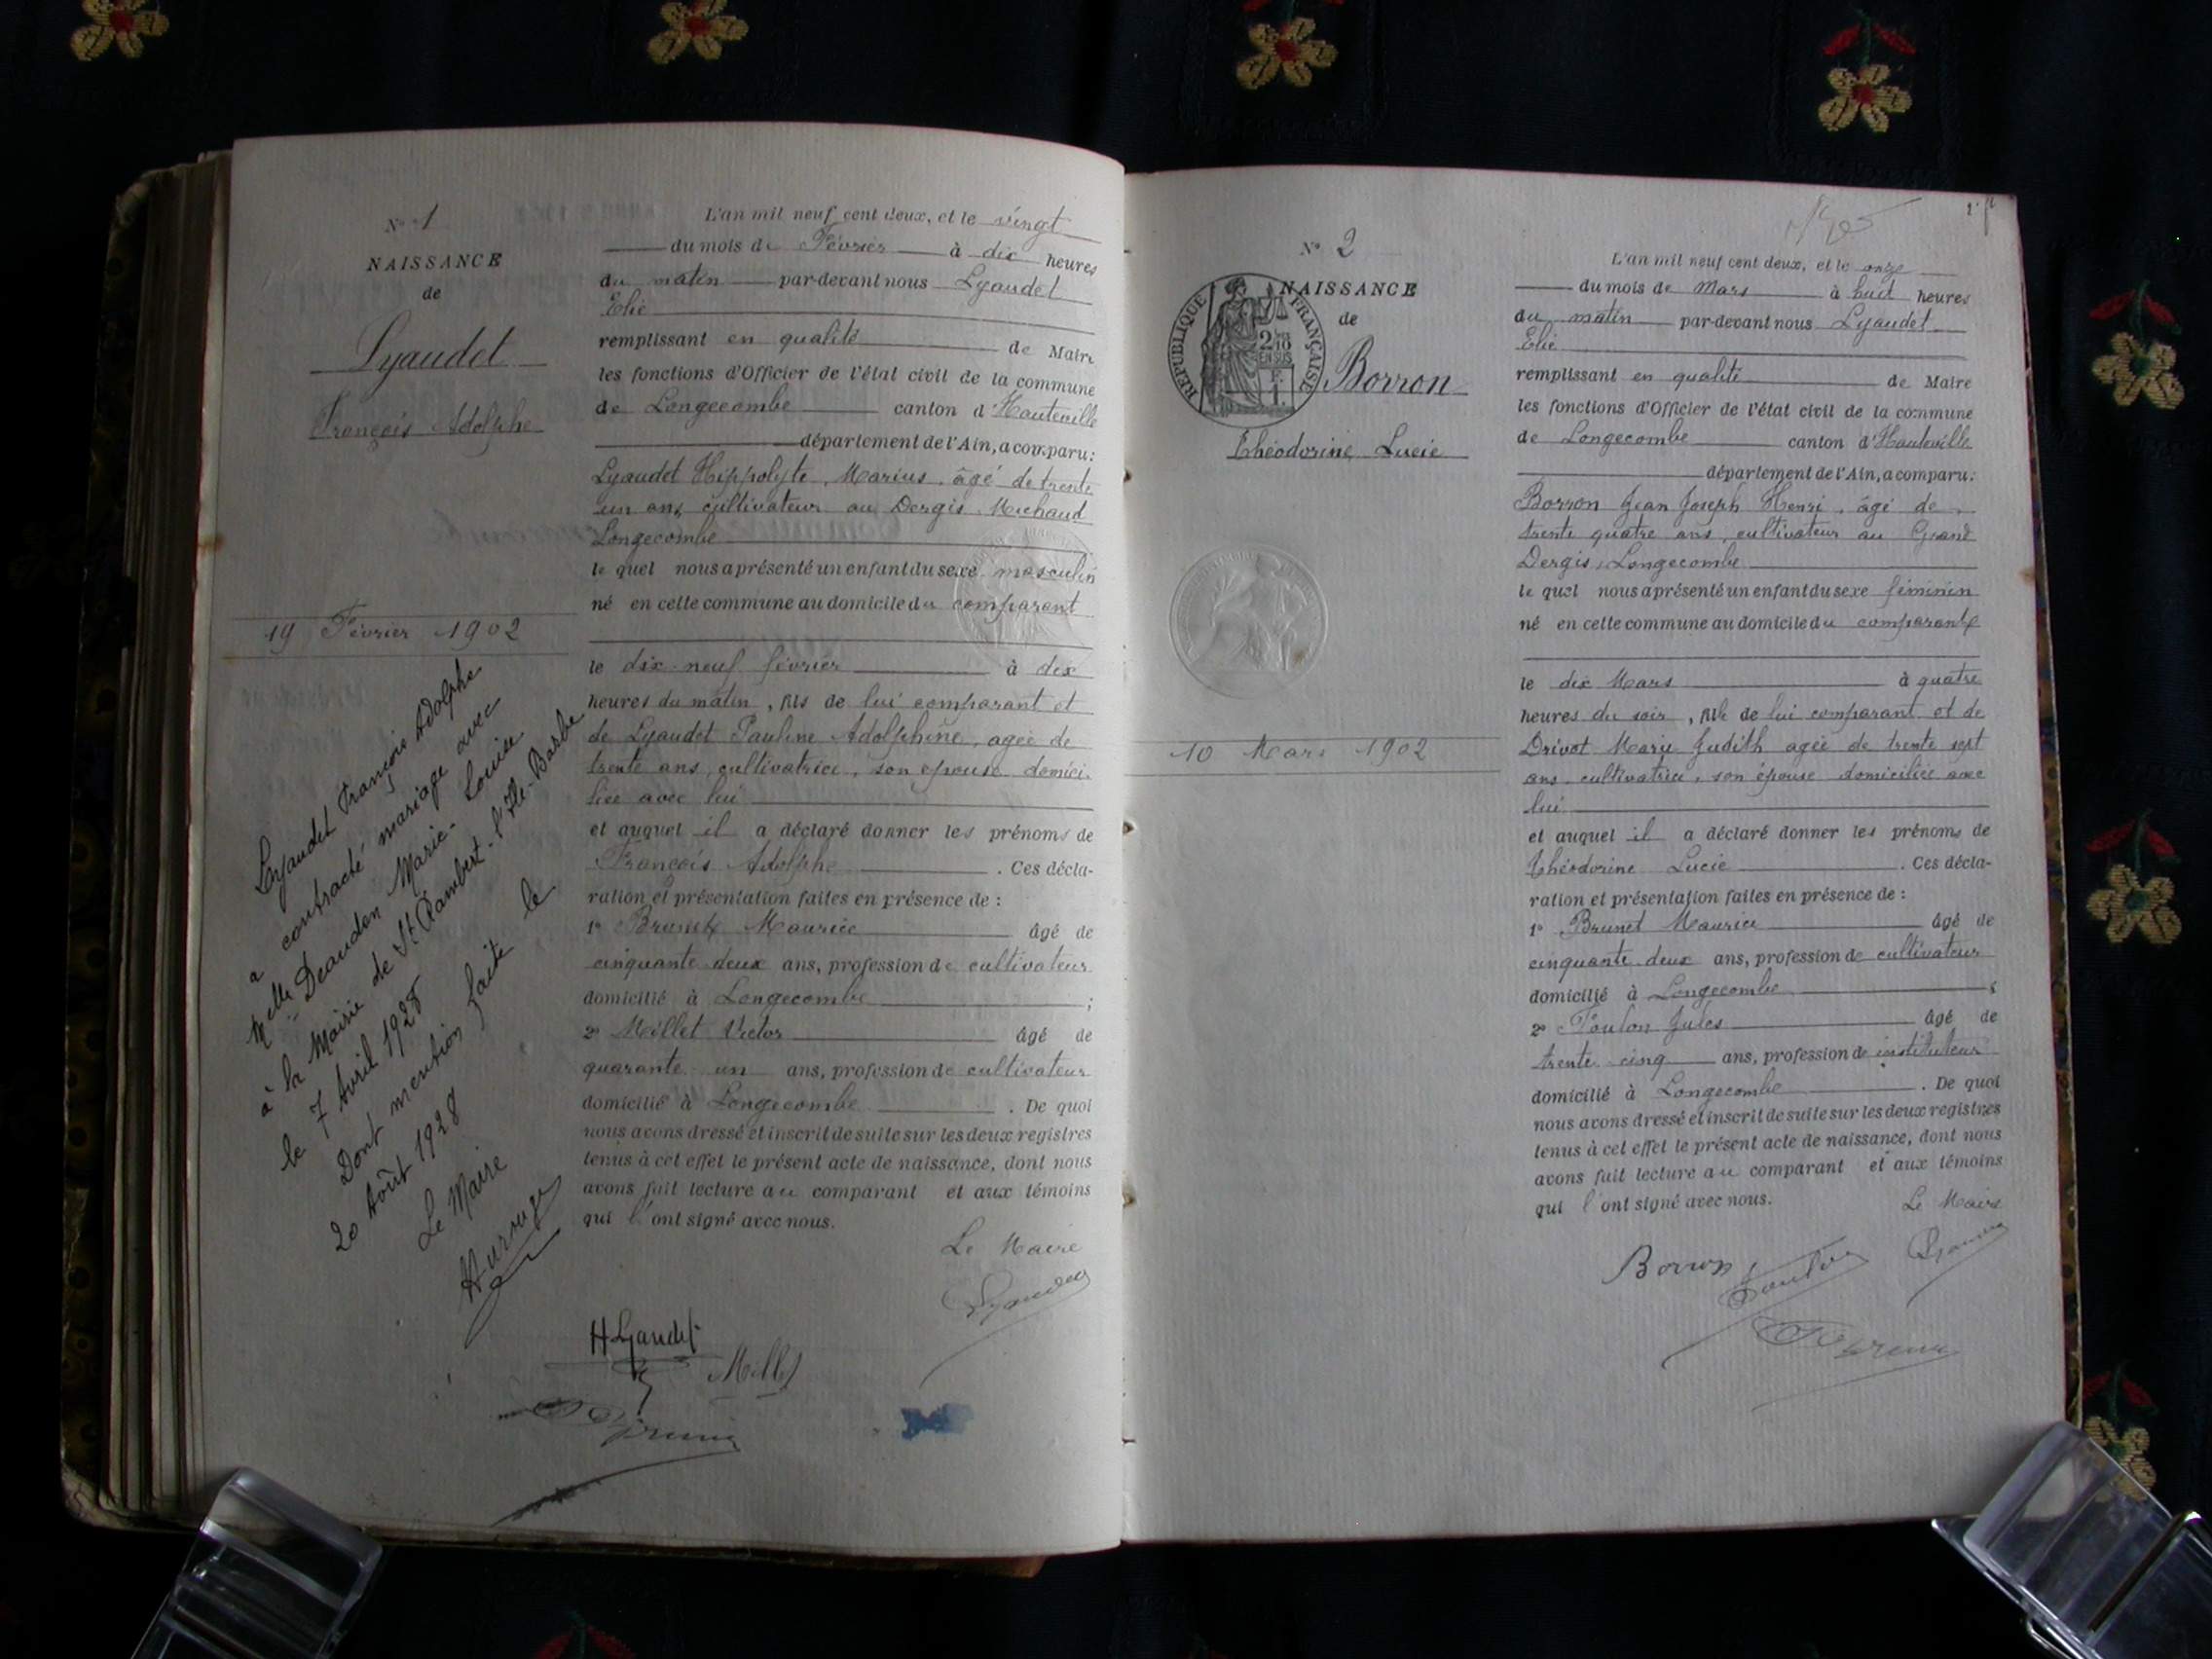 N° 1
NAISSANCE
de
Lyaudet
François Adolphe
19 Février 1902
Lyaudet François Adolphe
a contracté mariage avec
Melle Deaudon Marie-Louise
à la Mairie de St Rambert-l'Ile-Barbe
le 7 Avril 1928
Dont mention faite le
20 Août 1928
Le Maire
L'an mil neuf cent deux, et le vingt
du mois de Février à dix heures
du matin par-devant nous Lyaudet
Elie
remplissant en qualité de Maire
les fonctions d'Officier de l'état civil de la commune
de Longecombe canton d'Hauteville
département de l'Ain, a comparu:
Lyaudet Hippolyte, Marius, âgé de trente
un ans, cultivateur au Dergis-Michaud
Longecombe
le quel nous a présenté un enfant du sexe masculin
né en cette commune au domicile du comparant
le dix-neuf février à dix
heures du matin, fils de lui comparant et
de Lyaudet Pauline Adolphine, agée de
trente ans, cultivatrice, son épouse domici-
liée avec lui
et auquel il a déclaré donner les prénoms de
François Adolphe. Ces décla-
ration et présentation faites en présence de :
1° Brunet Maurice âgé de
cinquante deux ans, profession de cultivateur
domicilié à Longecombe ;
2° Millet Victor âgé de
quarante un ans, profession de cultivateur
domicilié à Longecombe. De quoi
nous avons dressé et inscrit de suite sur les deux registres
tenus à cet effet le présent acte de naissance, dont nous
avons fait lecture au comparant et aux témoins
qui l'ont signé avec nous.
Le Maire
Lyaudet
H Lyaudet
Millet
Brunet
N° 2
NAISSANCE
de
RÉPUBLIQUE FRANÇAISE
2/10
EN SUS
F.
1.
Borron
Théodorine Lucie
10 Mars 1902
L'an mil neuf cent deux, et le onze
du mois de Mars à huit heures
du matin par-devant nous Lyaudet
Elie
remplissant en qualité de Maire
les fonctions d'Officier de l'état civil de la commune
de Longecombe canton d'Hauteville
département de l'Ain, a comparu:
Borron Jean Joseph Henri, âgé de
trente quatre ans, cultivateur au Grand
Dergis, Longecombe
le quel nous a présenté un enfant du sexe féminin
né en cette commune au domicile du comparant
le dix Mars à quatre
heures du soir, fille de lui comparant et de
Drivot Marie Judith agée de trente sept
ans, cultivatrice, son épouse domiciliée avec
lui
et auquel il a déclaré donner les prénoms de
Théodorine Lucie. Ces décla-
ration et présentation faites en présence de :
1° Brunet Maurice âgé de
cinquante deux ans, profession de cultivateur
domicilié à Longecombe ;
2° Foulon Jules âgé de
trente cinq ans, profession de instituteur
domicilié à Longecombe. De quoi
nous avons dressé et inscrit de suite sur les deux registres
tenus à cet effet le présent acte de naissance, dont nous
avons fait lecture au comparant et aux témoins
qui l'ont signé avec nous.
Le Maire
Borron
Foulon
Lyaudet
Brunet